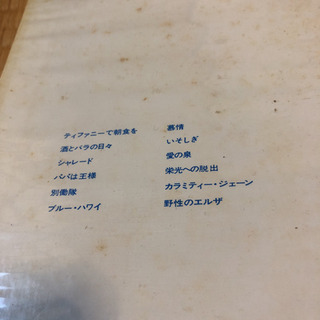 ティファニーで朝食を
酒とバラの日々
シャレード
パパは王様
別働隊
ブルー・ハワイ
慕情
いそしぎ
愛の泉
栄光への脱出
カラミティー・ジェーン
野性のエルザ